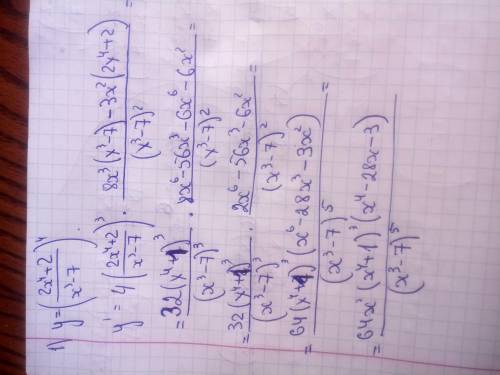 1) y = ((2x⁴+2)/(x³-7))⁴
y' = 4((2x⁴+2)/(x³-7))³ · (8x³(x³-7) - 3x²(2x⁴+2))/(x³-7)² =
= 32(x⁴+1)³/(x³-7)³ · (8x⁶-56x³-6x⁶-6x²)/(x³-7)² =
= 32(x⁴+1)³/(x³-7)³ · (2x⁶-56x³-6x²)/(x³-7)² =
= 64(x⁴+1)³(x⁶-28x³-3x²)/(x³-7)⁵
= 64x²(x⁴+1)³(x⁴-28x-3)/(x³-7)⁵